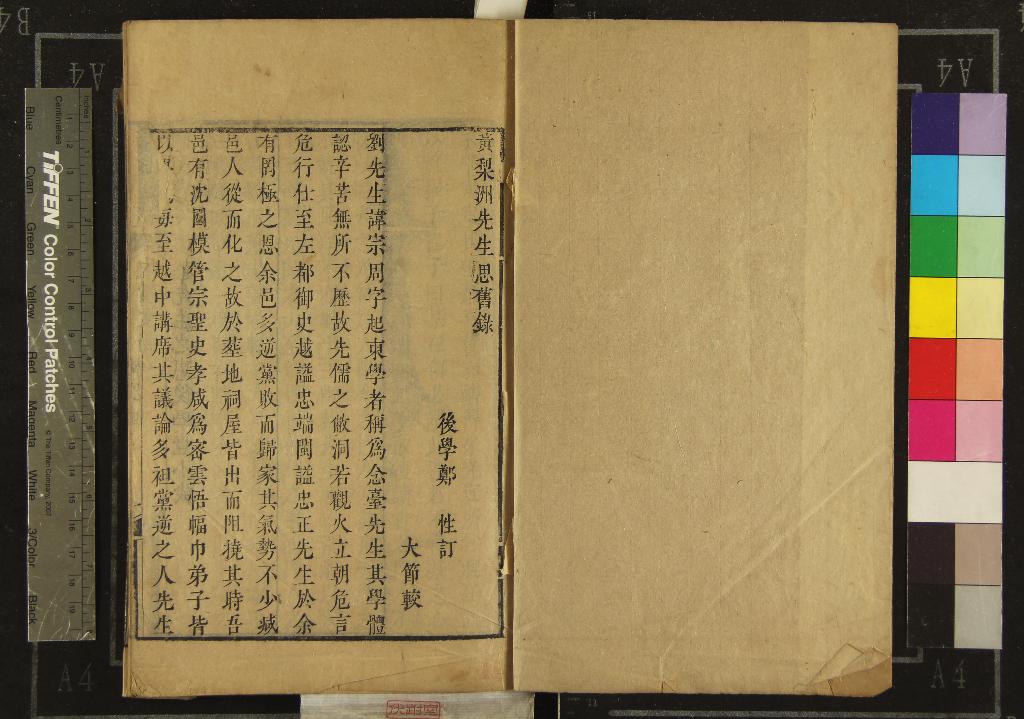 黃梨洲先生思舊錄
後學鄭　性訂
大節較
劉先生諱宗周字起東學者稱為念臺先生其學體
認辛苦無所不歷故先儒之敝洞若觀火立朝危言
危行仕至左都御史越謚忠端閩謚忠正先生於余
有罔極之恩余邑多逆黨敗而歸家其氣勢不少減
邑人從而化之故於塟地祠屋皆出而阻撓其時吾
邑有沈國模管宗聖史孝咸為密雲悟幅巾弟子皆
以
每至越中講席其議論多袒黨逆之人先生
A4
A4
A4
B4
Inches
Centimetres
TIFFEN Color Control Patches
© The Tiffen Company, 2007
Blue
Cyan
Green
Yellow
Red
Magenta
White
3/Color
Black